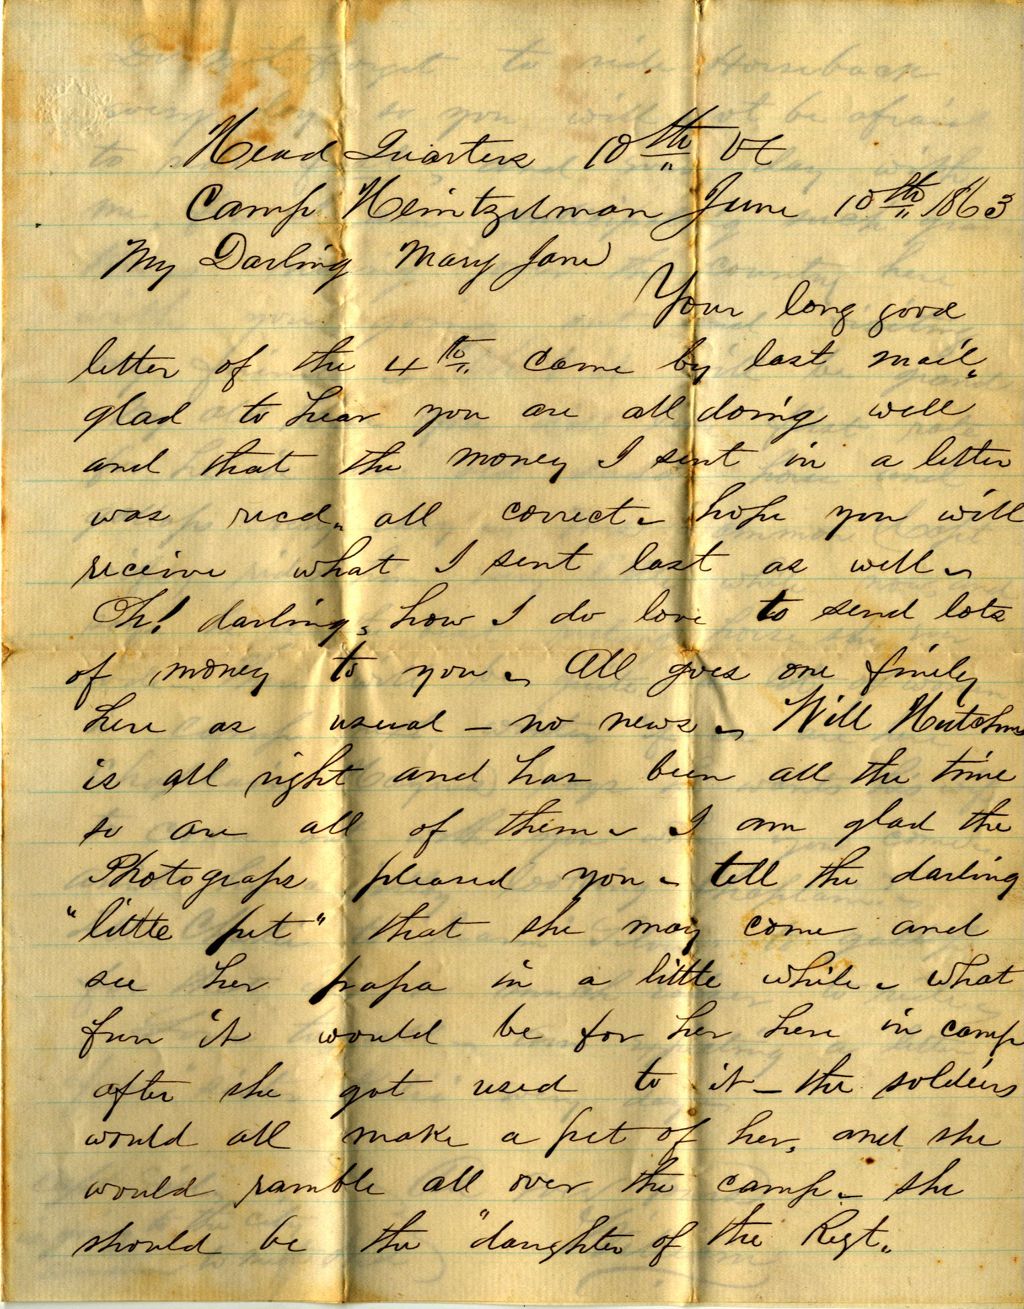 Head Quarters 10th Vt
Camp Heintzelman June 10th 1863
My Darling Mary Jane
Your long good
letter of the 4th came by last mail,
glad to hear you are all doing well
and that the money I sent in a letter
was recd, all correct - hope you will
receive what I sent last as well -
Oh! darling, how I do love to send lots
of money to you - All goes one finely
here as usual - no news - Will Hutchins
is all right and has been all the time
so are all of them - I am glad the
Photograps pleased you - tell the darling
"little pet" that she may come and
see her papa in a little while - what
fun it would be for her here in camp
after she got used to it - the soldiers
would all make a pet of her, and she
would ramble all over the camp - she
should be the "daughter of the Regt.